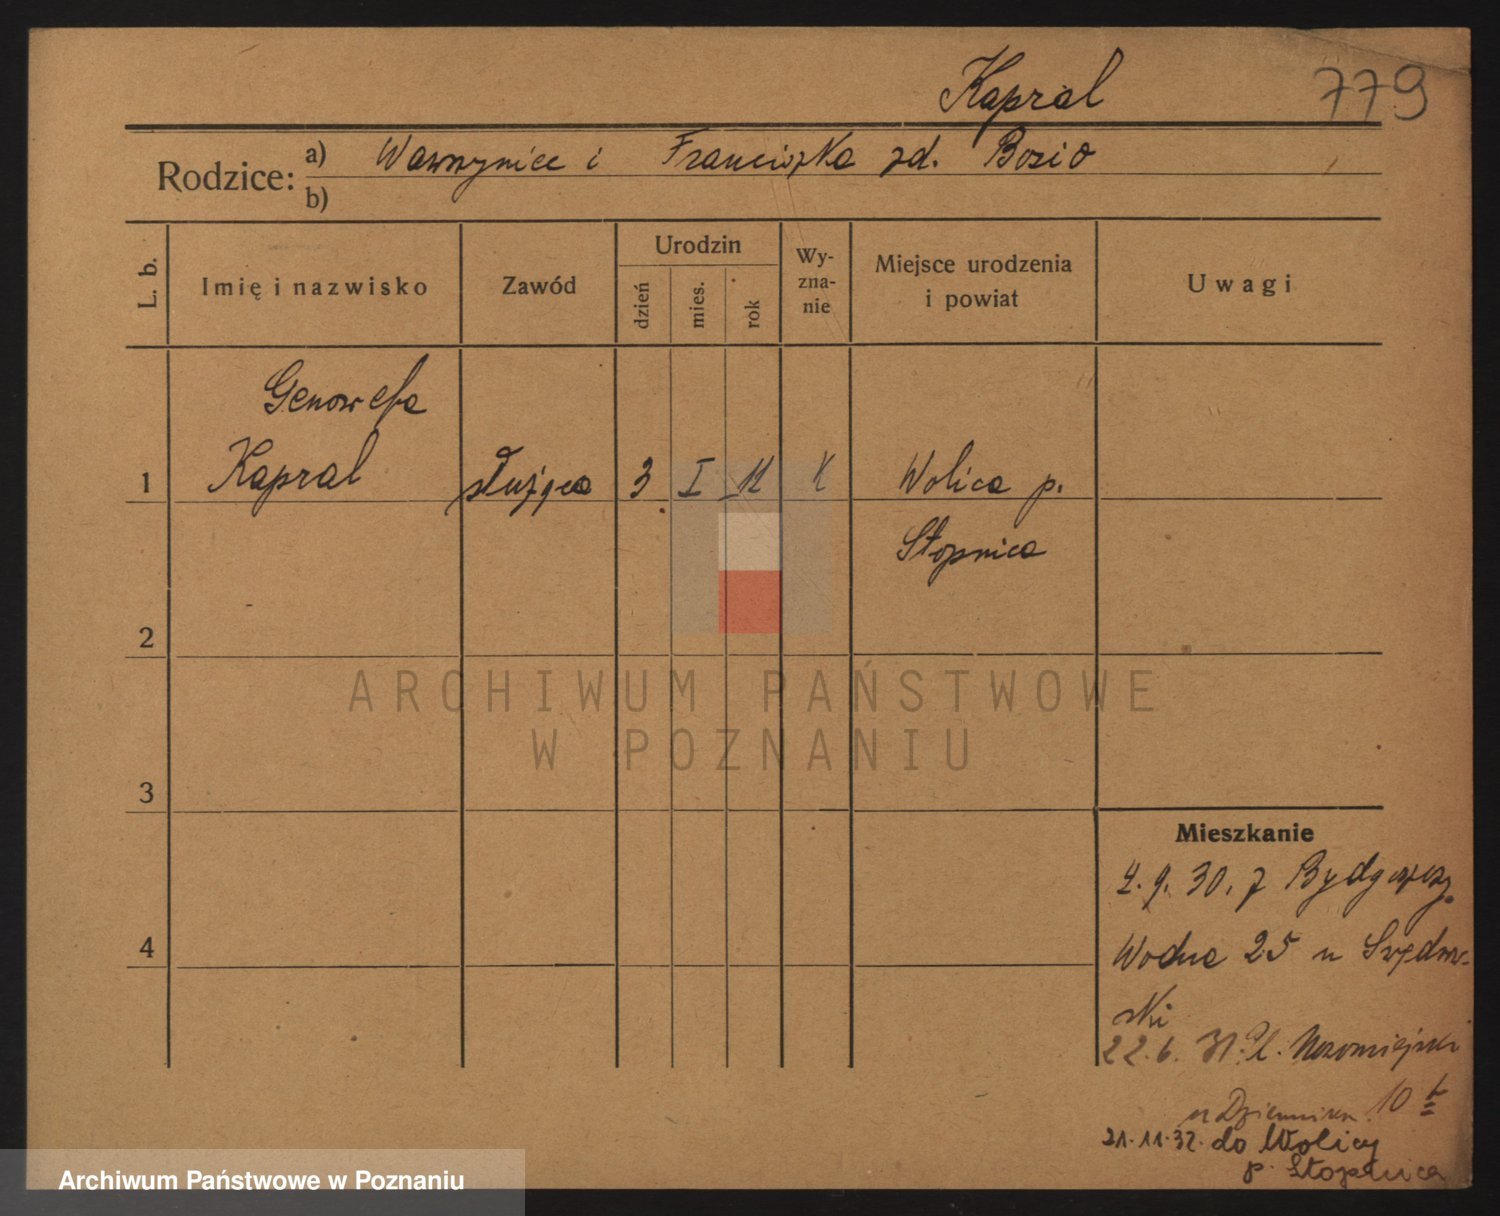 Kapral 779
Rodzice: a) Wawrzyniec i Franciszka zd. Bozio
b)
L. b. Imię i nazwisko Zawód Urodzin dzień mies. rok Wy-zna-nie Miejsce urodzenia i powiat Uwagi
Genowefa
1 Kapral służąca 3 I 11 K Wolica p.
Stopnica
2
ARCHIWUM PAŃSTWOWE
W POZNANIU
3
Mieszkanie
4. 9. 30. z Bydgoszcz.
4 Wodna 25 u
ski
22. 6. 31. Pl. Nowomiejski
10
21. 11. 32. do Wolicy
p. Stopnica
Archiwum Państwowe w Poznaniu